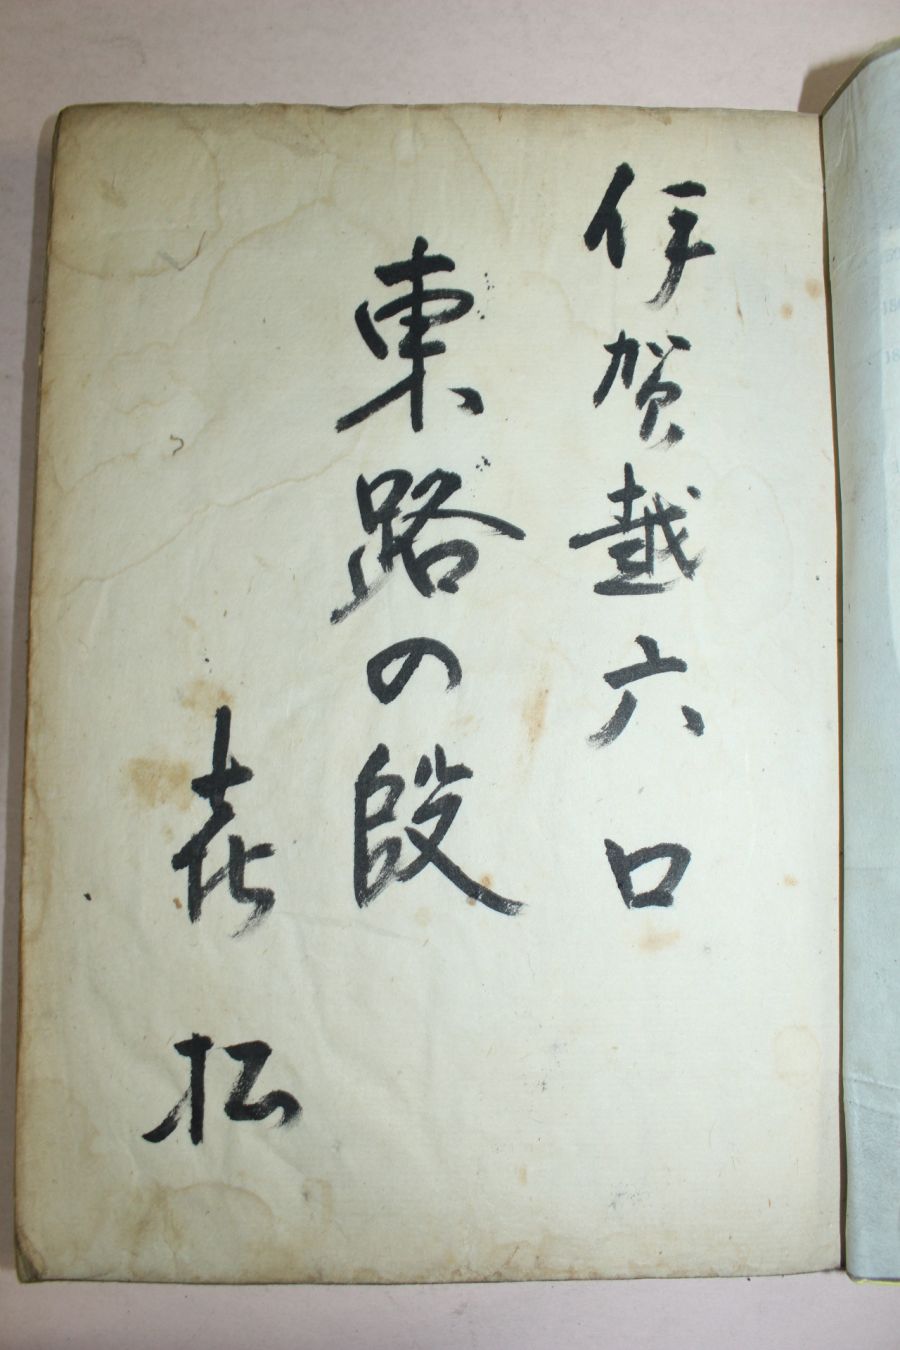 伊賀越六口
東路の段
㐂松